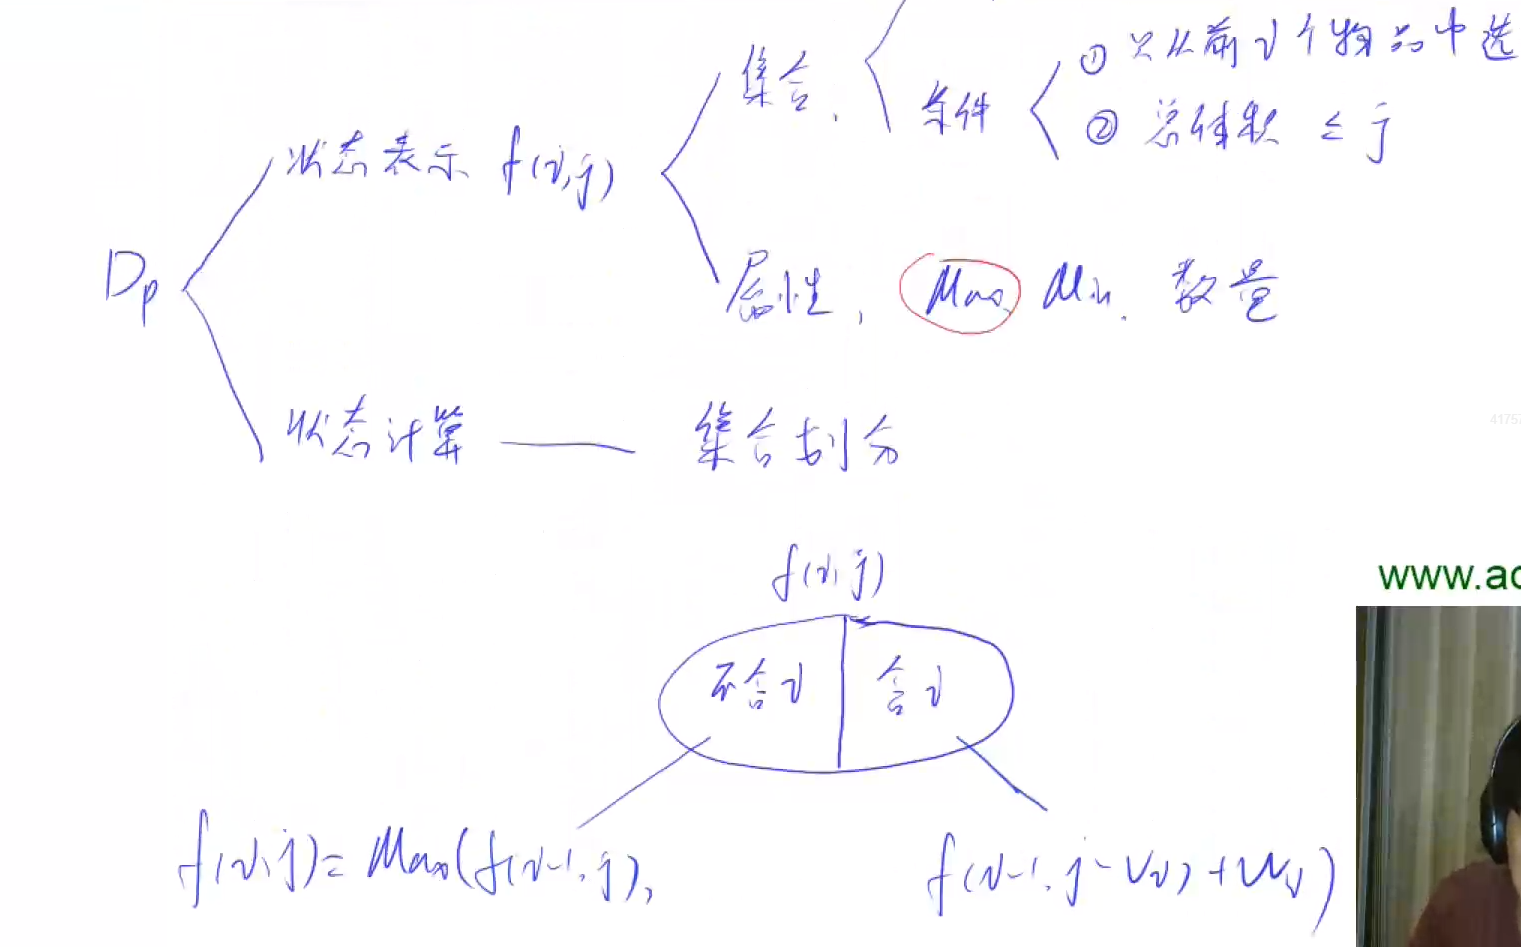 集合.
条件
① 只从前i个物品中选
② 总体积 ≤ j
状态表示 f(i,j)
Dp
属性, Max Min. 数量
状态计算 —— 集合划分
f(i,j)
不含i 含i
www.ac
f(i,j)= Max(f(i-1,j), f(i-1,j-Vi)+Wi)
4175